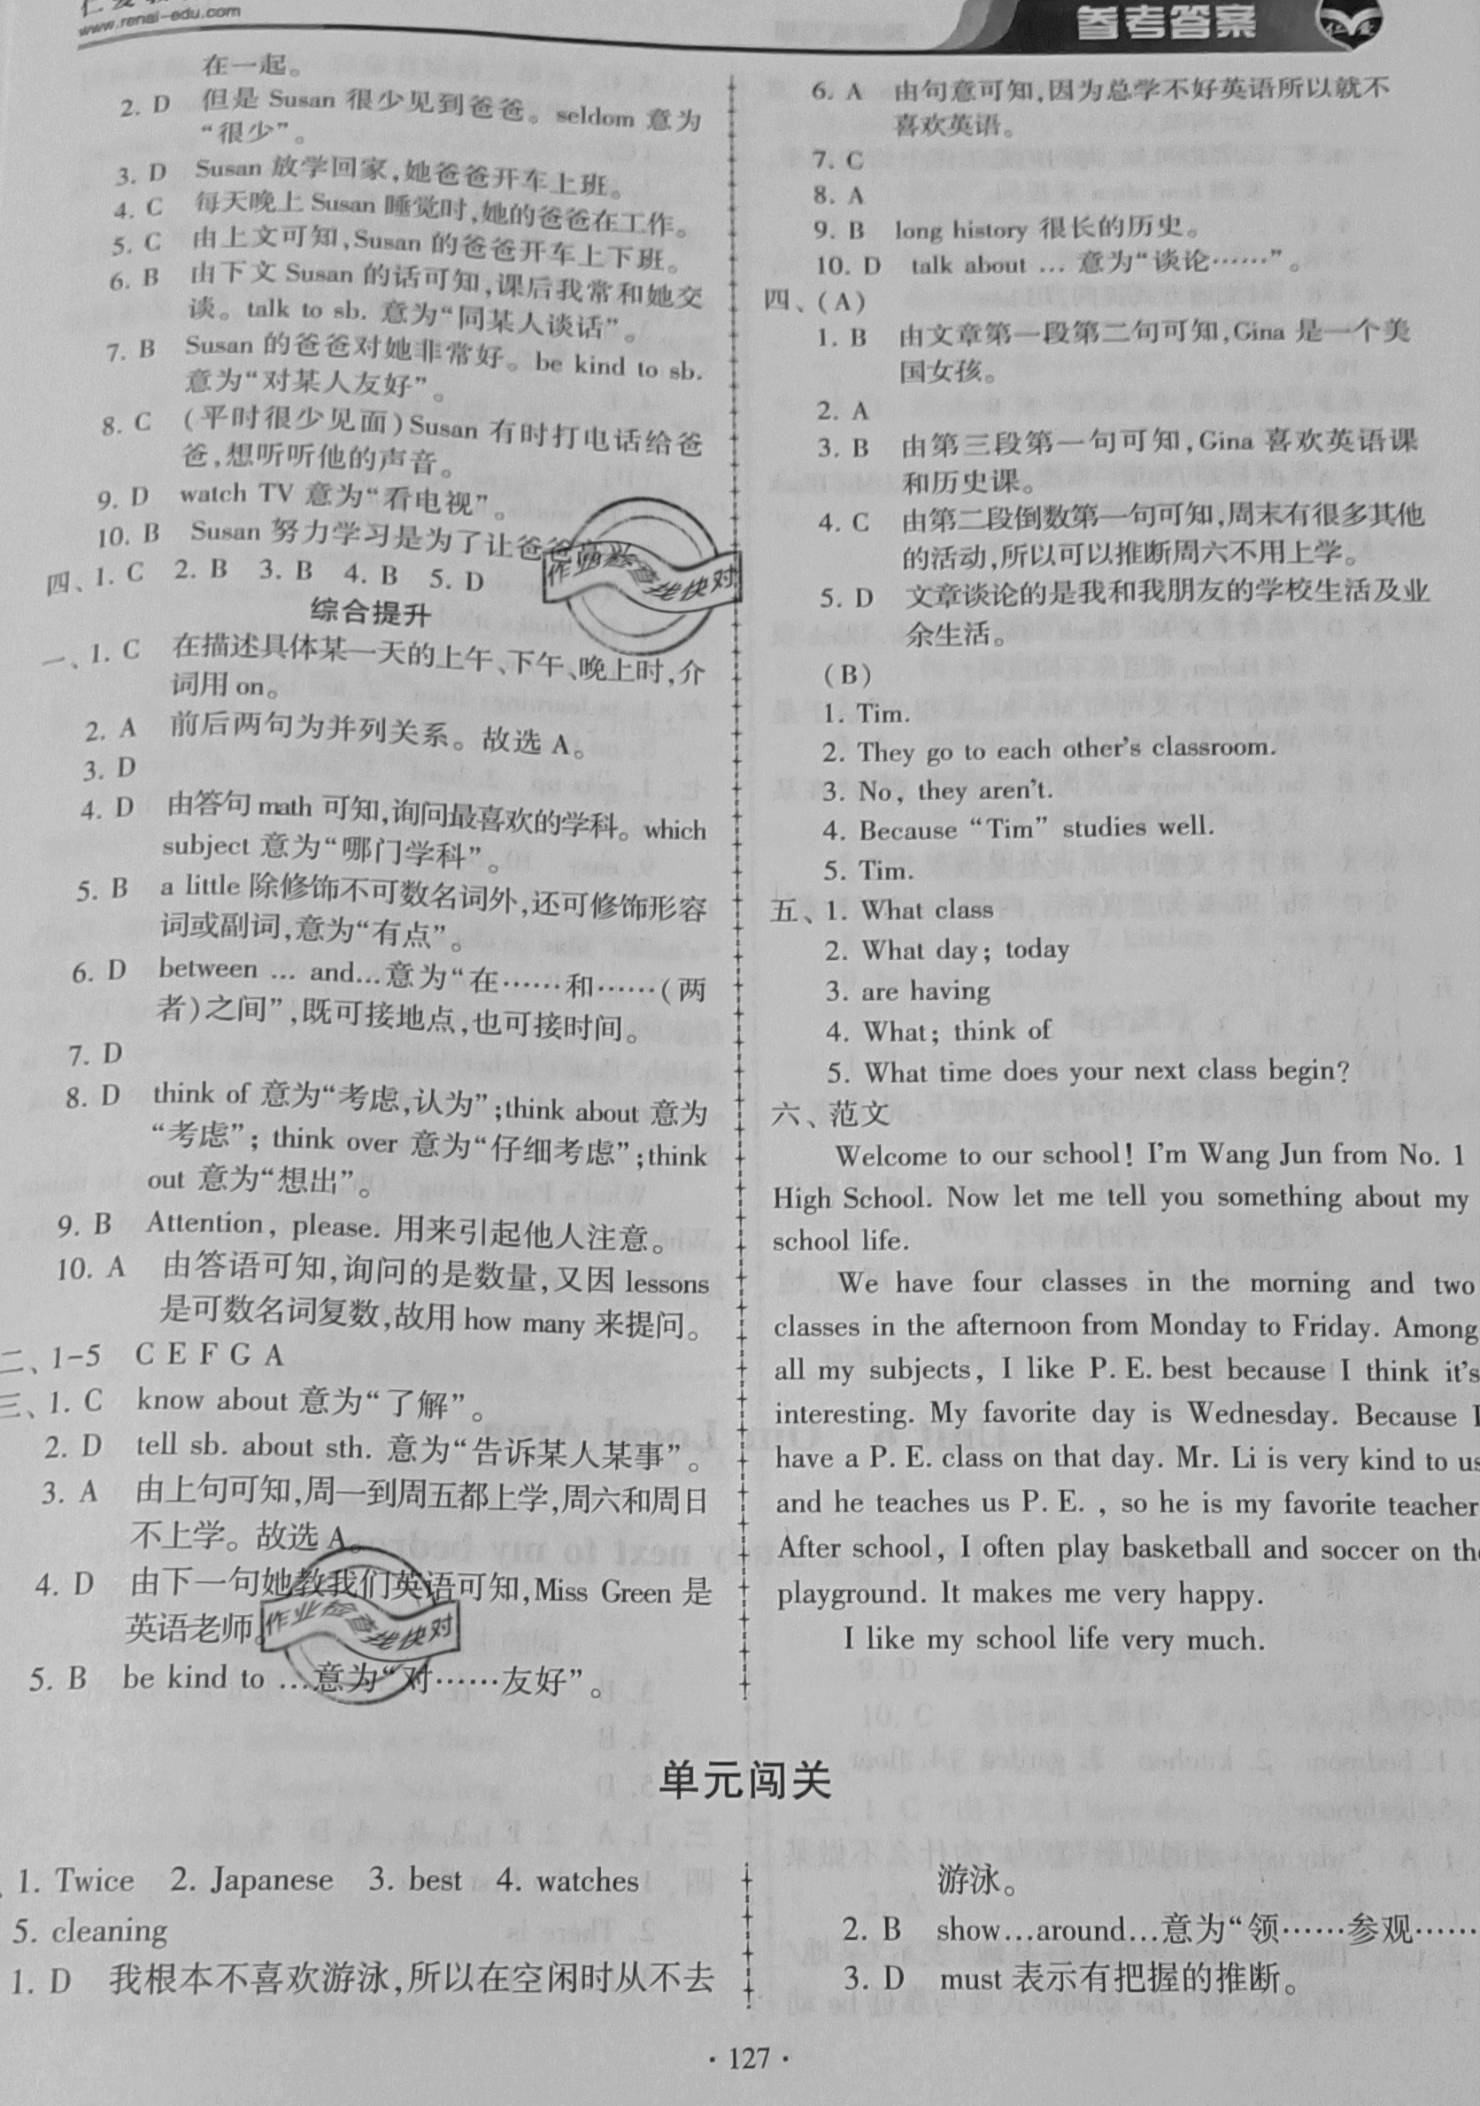 www.renai-edu.com
参考答案
在一起。
2. D 但是 Susan 很少见到爸爸。seldom 意为
“很少”。
3. D Susan 放学回家,她爸爸开车上班。
4. C 每天晚上 Susan 睡觉时,她的爸爸在工作。
5. C 由上文可知,Susan 的爸爸开车上下班。
6. B 由下文 Susan 的话可知,课后我常和她交
谈。talk to sb. 意为“同某人谈话”。
7. B Susan 的爸爸对她非常好。be kind to sb.
意为“对某人友好”。
8. C (平时很少见面)Susan 有时打电话给爸
爸,想听听他的声音。
9. D watch TV 意为“看电视”。
10. B Susan 努力学习是为了让爸爸
四、1. C 2. B 3. B 4. B 5. D
综合提升
一、1. C 在描述具体某一天的上午、下午、晚上时,介
词用 on。
2. A 前后两句为并列关系。故选 A。
3. D
4. D 由答句 math 可知,询问最喜欢的学科。which
subject 意为“哪门学科”。
5. B a little 除修饰不可数名词外,还可修饰形容
词或副词,意为“有点”。
6. D between ... and...意为“在……和……(两
者)之间”,既可接地点,也可接时间。
7. D
8. D think of 意为“考虑,认为”;think about 意为
“考虑”; think over 意为“仔细考虑”;think
out 意为“想出”。
9. B Attention, please. 用来引起他人注意。
10. A 由答语可知,询问的是数量,又因 lessons
是可数名词复数,故用 how many 来提问。
二、1-5 C E F G A
三、1. C know about 意为“了解”。
2. D tell sb. about sth. 意为“告诉某人某事”。
3. A 由上句可知,周一到周五都上学,周六和周日
不上学。故选 A。
4. D 由下一句她教我们英语可知,Miss Green 是
英语老师。
5. B be kind to ...意为“对……友好”。
作业检查找快对
作业检查找快对
6. A 由句意可知,因为总学不好英语所以就不
喜欢英语。
7. C
8. A
9. B long history 很长的历史。
10. D talk about ... 意为“谈论……”。
四、(A)
1. B 由文章第一段第二句可知,Gina 是一个美
国女孩。
2. A
3. B 由第三段第一句可知,Gina 喜欢英语课
和历史课。
4. C 由第二段倒数第一句可知,周末有很多其他
的活动,所以可以推断周六不用上学。
5. D 文章谈论的是我和我朋友的学校生活及业
余生活。
(B)
1. Tim.
2. They go to each other's classroom.
3. No, they aren't.
4. Because “Tim” studies well.
5. Tim.
五、1. What class
2. What day; today
3. are having
4. What; think of
5. What time does your next class begin?
六、范文
Welcome to our school! I'm Wang Jun from No. 1
High School. Now let me tell you something about my
school life.
We have four classes in the morning and two
classes in the afternoon from Monday to Friday. Among
all my subjects, I like P. E. best because I think it's
interesting. My favorite day is Wednesday. Because I
have a P. E. class on that day. Mr. Li is very kind to us
and he teaches us P. E. , so he is my favorite teacher
After school, I often play basketball and soccer on the
playground. It makes me very happy.
I like my school life very much.
单元闯关
1. Twice 2. Japanese 3. best 4. watches
5. cleaning
1. D 我根本不喜欢游泳,所以在空闲时从不去
游泳。
2. B show...around...意为“领……参观……
3. D must 表示有把握的推断。
· 127 ·